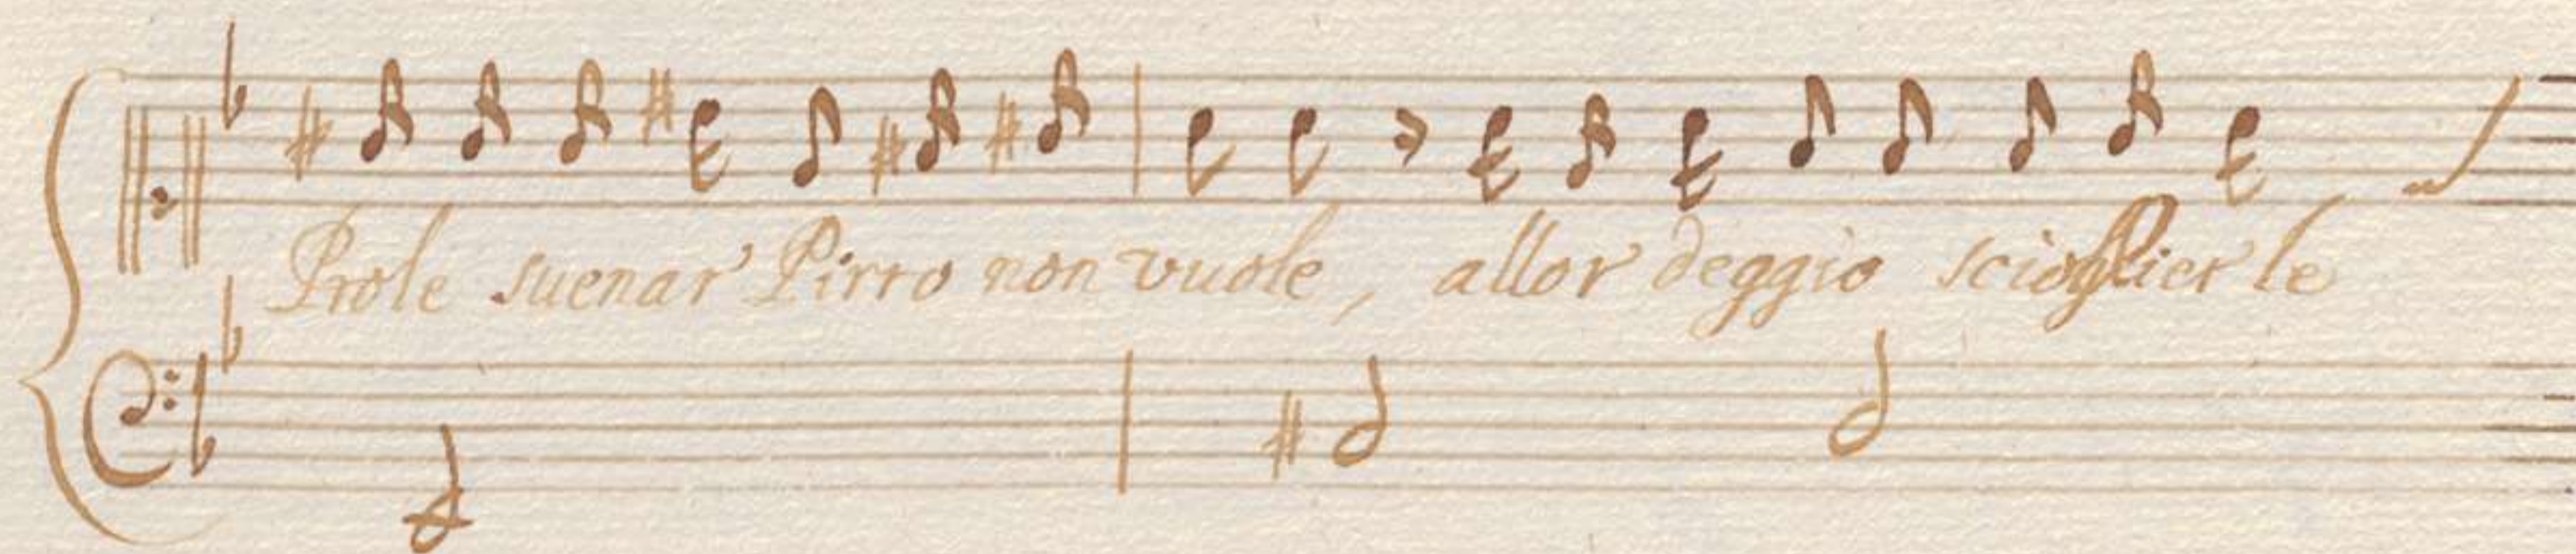 Prole suenar Pirro non vuole, allor deggio scioglier le